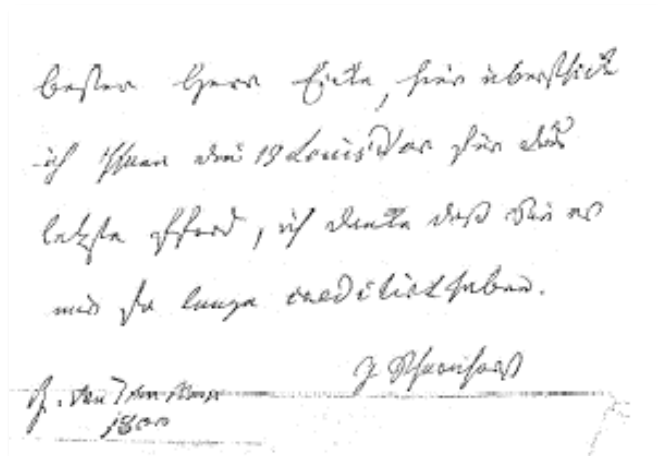 bester Herr Eicke, hier überschick
ich Ihnen die 19 Louisdor für das
letzte Pferd, ich danke daß Sie es
mir so lange creditirt haben.
G. Scharnhorst
H. den 7ten
1800